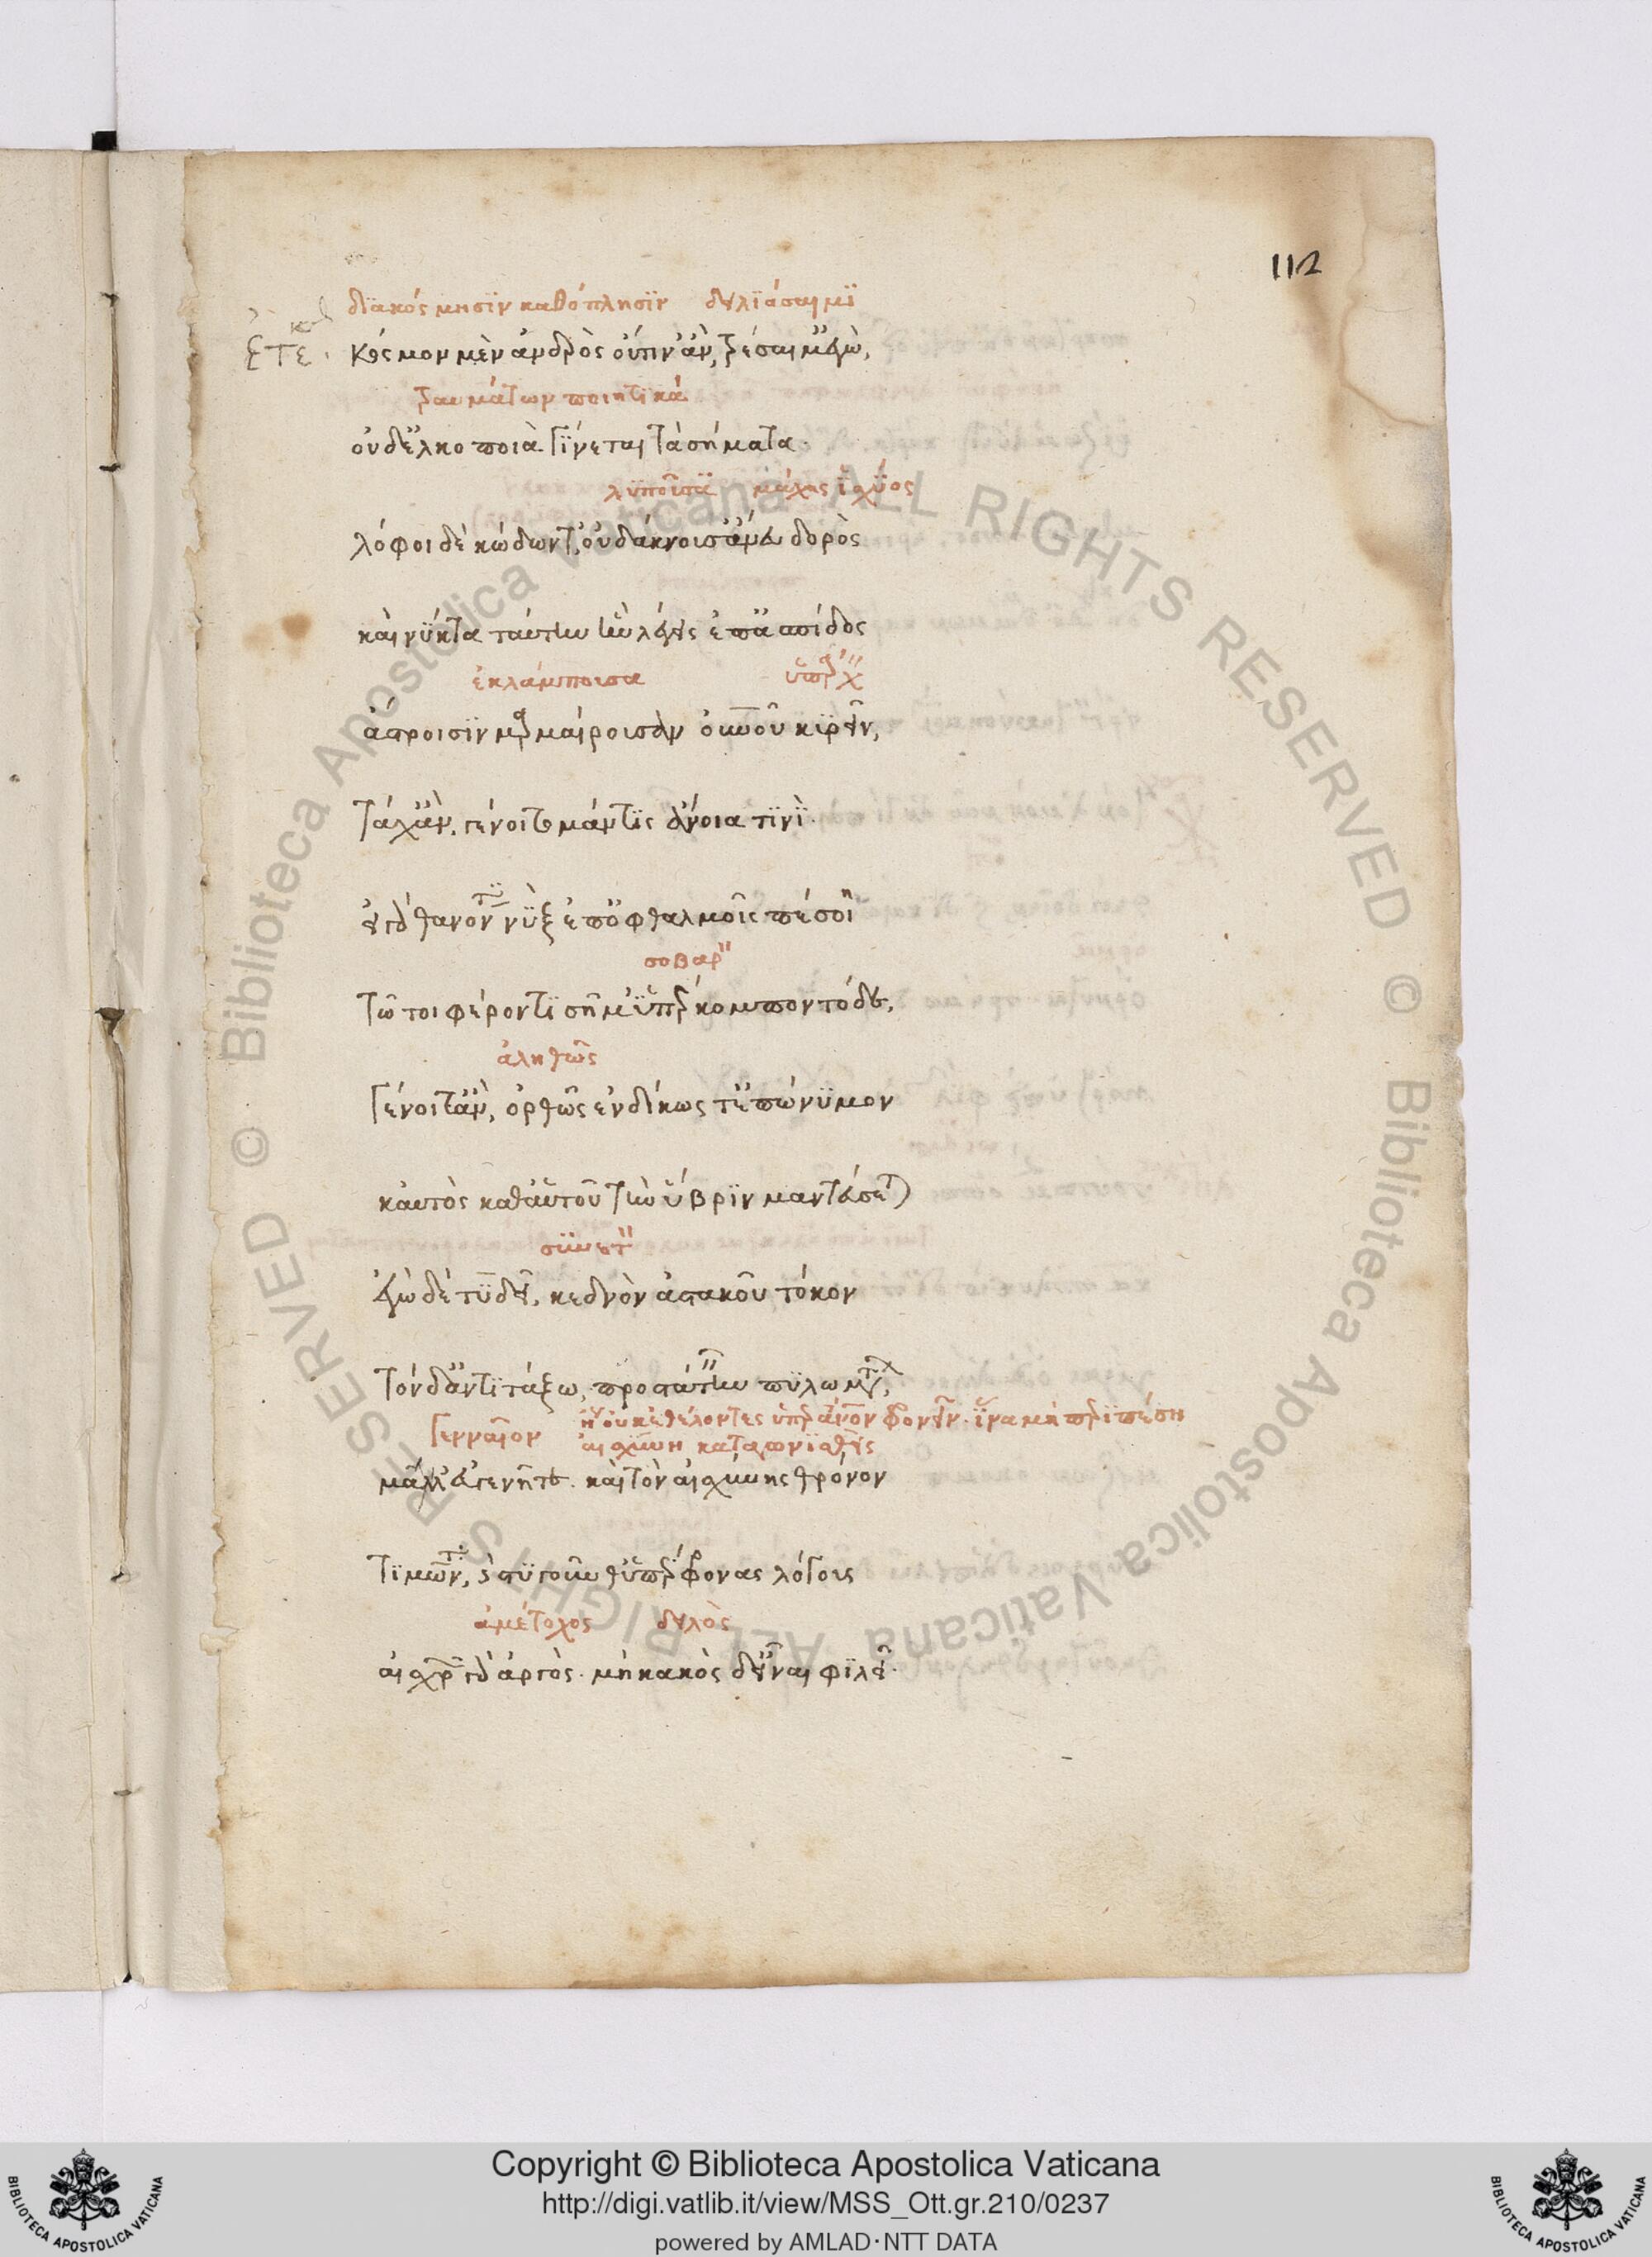 112
διακόσμησιν καθόπλησιν δειλιάσαιμι
ἐτε. κόσμον μὲν ἀνδρὸς οὔτιν' ἂν, τρέσαιμ' ἐγὼ,
τραυμάτων ποιητικά
οὐδ' ἑλκοποιὰ γίνεται τὰ σήματα.
λυποῦσι μάχης ἰσχύος
λόφοι δὲ κώδων τ', οὐ δάκνουσ' ἄνευ δορὸς
καὶ νύκτα ταύτην ἣν λέγεις ἐπ' ἀσπίδος
ἐκλάμπουσα ὑπάρχειν
ἄστροισιν μαρμαίρουσαν οὐρανοῦ κυρεῖν,
τάχ' ἂν, γένοιτο μάντις ἄνοια τινὶ.
εἰ γὰρ θανόντι νὺξ ἐπ' ὀφθαλμοῖς πέσοι
σοβαρὸν
τῶ τοι φέροντι σῆμ' ὑπέρκομπον τόδε,
ἀληθῶς
γένοιτ' ἂν, ὀρθῶς ἐνδίκως τ' ἐπώνυμον
καὐτὸς καθ' αὑτοῦ τὴν ὕβριν μαντεύσεται
συνετὸν
ἐγὼ δὲ τυδεῖ, κεδνὸν ἀστακοῦ τόκον
τόνδ' ἀντιτάξω, προστάτην πυλωμάτων,
γενναῖον ἤγουν οὐκ ἐθέλοντες ὑπὲρ ἄνθρωπον φρονεῖν. ἵνα μὴ περιπέση
αἰσχύνη καταφωνιαθεὶς
μάλ' εὐγενῆ τε. καὶ τὸν αἰσχύνης θρόνον
τιμῶντα, καὶ στυγοῦνθ' ὑπέρφρονας λόγους
ἀμέτοχος δειλὸς
αἰσχρῶν γὰρ ἀργὸς. μὴ κακὸς δ' εἶναι φιλεῖ.
Copyright © Biblioteca Apostolica Vaticana
http://digi.vatlib.it/view/MSS_Ott.gr.210/0237
powered by AMLAD·NTT DATA
© Biblioteca Apostolica Vaticana ALL RIGHTS RESERVED © Biblioteca Apostolica Vaticana ALL RIGHTS RESERVED
BIBLIOTECA APOSTOLICA VATICANA
BIBLIOTECA APOSTOLICA VATICANA